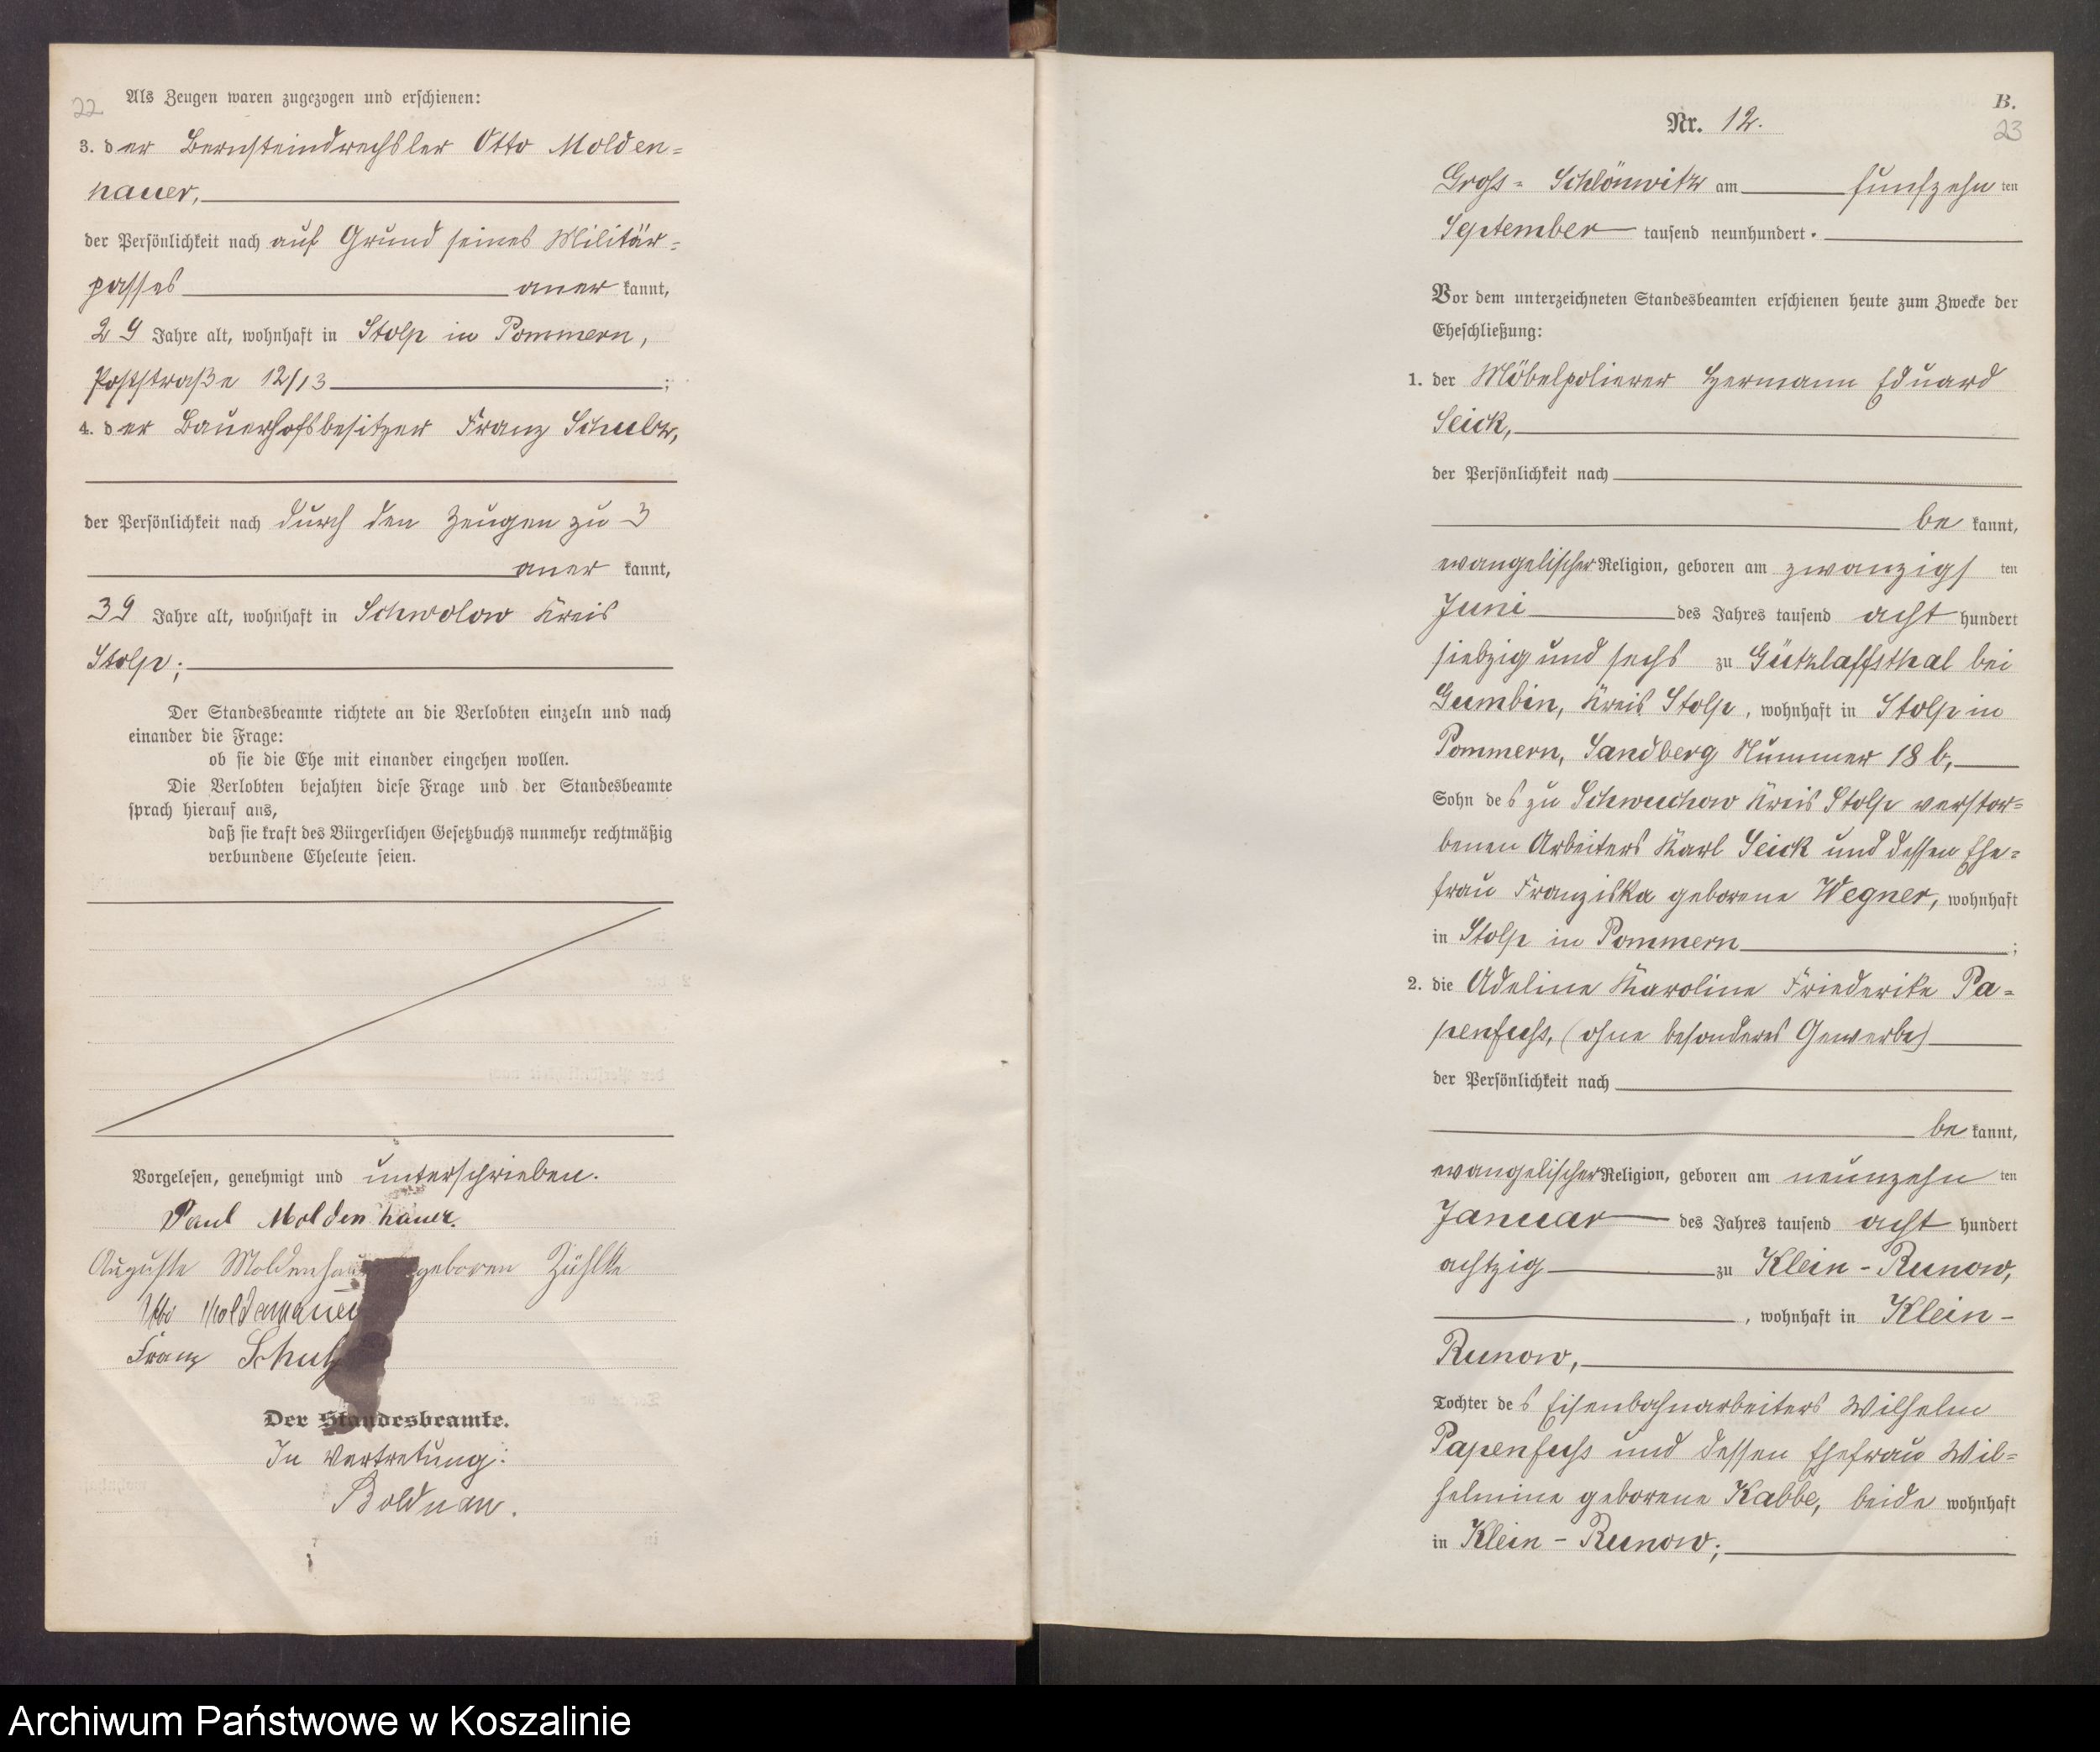 22
Als Zeugen waren zugezogen und erschienen:
3. der Bernsteindrechsler Otto Molden=
hauer,
der Persönlichkeit nach auf Grund seines Militär=
passes aner kannt,
29 Jahre alt, wohnhaft in Stolp in Pommern,
Poststraße 12/13 ;
4. der Bauerhofsbesitzer Franz Schulz,
der Persönlichkeit nach durch den Zeugen zu 3
aner kannt,
39 Jahre alt, wohnhaft in Schwolow Kreis
Stolp;
Der Standesbeamte richtete an die Verlobten einzeln und nach
einander die Frage:
ob sie die Ehe mit einander eingehen wollen.
Die Verlobten bejahten diese Frage und der Standesbeamte
sprach hierauf aus,
daß sie kraft des Bürgerlichen Gesetzbuchs nunmehr rechtmäßig
verbundene Eheleute seien.
Vorgelesen, genehmigt und unterschrieben.
Paul Moldenhauer.
Auguste Moldenhauer geboren Zühlke
Otto Moldenhauer
Franz Schulz
Der Standesbeamte.
In Vertretung:
Bolduan.
B.
23
Nr. 12.
Gross=Schlönwitz am fünfzehn ten
September tausend neunhundert.
Vor dem unterzeichneten Standesbeamten erschienen heute zum Zwecke der
Eheschließung:
1. der Möbelpolierer Hermann Eduard
Seick,
der Persönlichkeit nach
be kannt,
evangelischer Religion, geboren am zwanzigs ten
Juni des Jahres tausend acht hundert
siebzig und sechs zu Gützlaffsthal bei
Gumbin, Kreis Stolp, wohnhaft in Stolp in
Pommern, Sandberg Nummer 18 b,
Sohn des zu Schwuchow Kreis Stolp verstor=
benen Arbeiters Karl Seick und dessen Ehe=
frau Franziska geborene Wegner, wohnhaft
in Stolp in Pommern ;
2. die Adeline Karoline Friederike Pa=
penfuss, (ohne besonderes Gewerbe)
der Persönlichkeit nach
be kannt,
evangelischer Religion, geboren am neunzehn ten
Januar des Jahres tausend acht hundert
achtzig zu Klein-Runow,
, wohnhaft in Klein-
Runow,
Tochter des Eisenbahnarbeiters Wilhelm
Papenfuss und dessen Ehefrau Wil=
helmine geborene Kabbe, beide wohnhaft
in Klein-Runow;
Archiwum Państwowe w Koszalinie